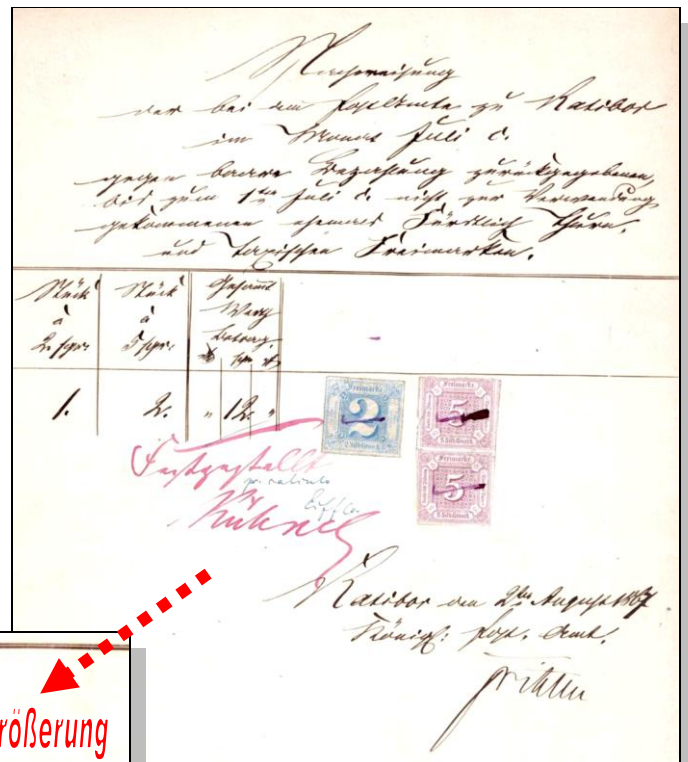 Nachweisung
der bei dem Postamte zu Ratibor
im Monat Juli c.
gegen baare Bezahlung zurückgegebenen,
bis zum 1ten Juli c. nicht zur Verwendung
gekommenen ehemals Fürstlich Thurn-
und Taxisschen Freimarken.
Stück à 2 sgr.
Stück à 5 sgr.
Gesammt Werth betrag.
1. 2. " 12. "
Freimarke
2
Freimarke
5
Freimarke
5
Festgestellt
Ratibor den 2ten August 1867
Königl: Post-Amt.
rößerung